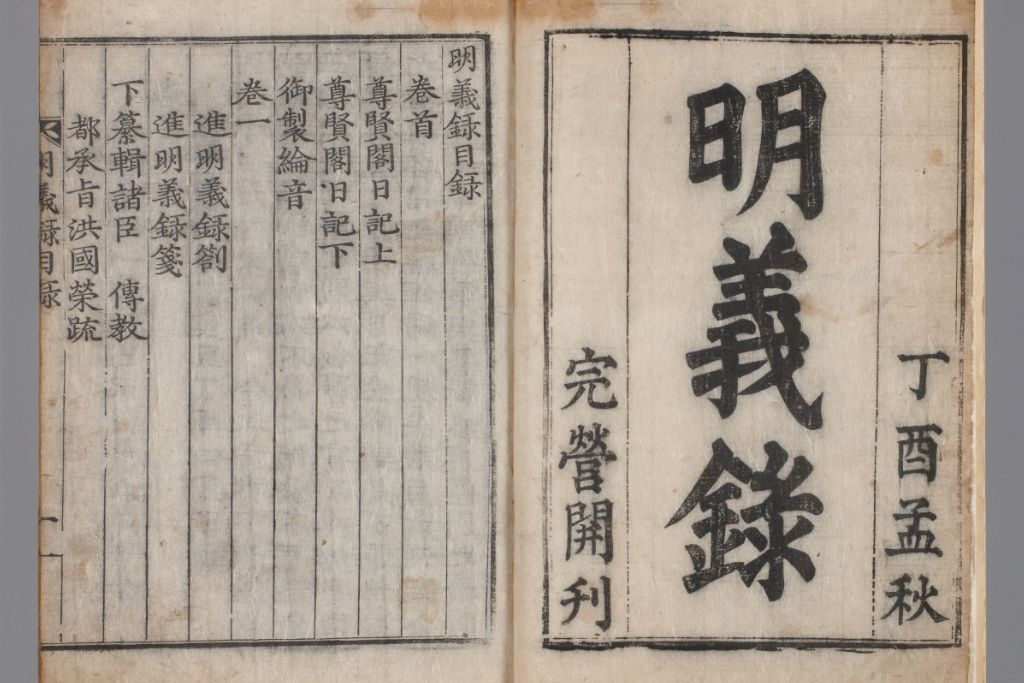 丁酉孟秋
明義錄
完營開刊
明義錄目錄
卷首
尊賢閣日記上
尊賢閣日記下
御製綸音
卷一
進明義錄劄
進明義錄箋
下纂輯諸臣 傳教
都承旨洪國榮疏
明義錄目錄 一